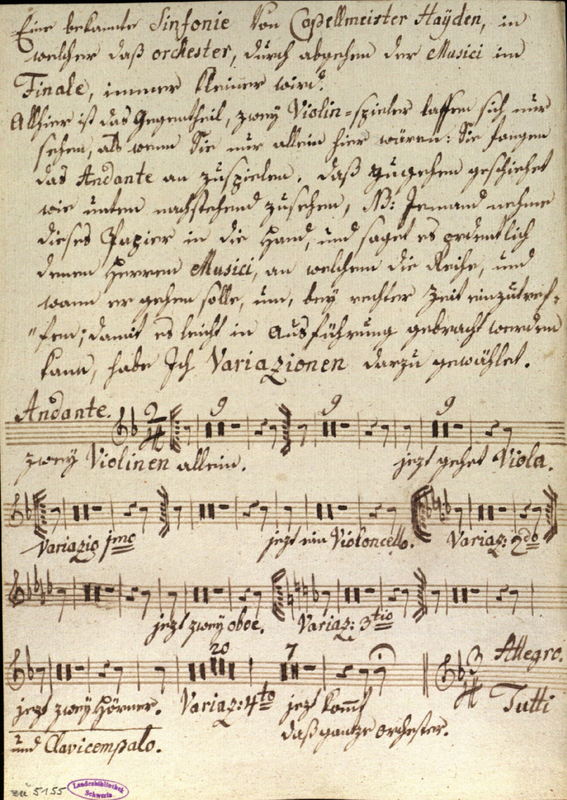 Eine bekannte Sinfonie von Capellmeister Haÿden, in
welcher daß orchester, durch abgehen der Musici im
Finale, immer kleiner wird.
Allhier ist das Gegentheil, zweÿ Violin=spieler lassen sich nur
sehen, als wenn Sie nur allein hier wären: Sie fangen
das Andante an zuspielen. daß zugehen geschiehet
wie unten nachstehend zusehen, NB: Jemand nehme
dieses Papier in die Hand, und saget es ordentlich
denen Herren Musici, an welchem die Reihe, und
wann er gehen solle, um, beÿ rechter Zeit einzutref=
"fen; damit es leicht in Ausführung gebracht werden
kann, habe Ich Variazionen darzu gewählet.
Andante. 2 4 9 9 9
zweÿ Violinen allein. jezt gehet Viola.
Variazio jmo jezt ein Violoncello. Variaz: 2do
jezt zweÿ oboe. Variaz: 3tio
20 7 3 4 Allegro.
jezt zweÿ Hörner. Variaz: 4to jezt komt Tutti
und Clavicempalo. daß ganze orchester.
5155
Landesbibliothek
Schwerin